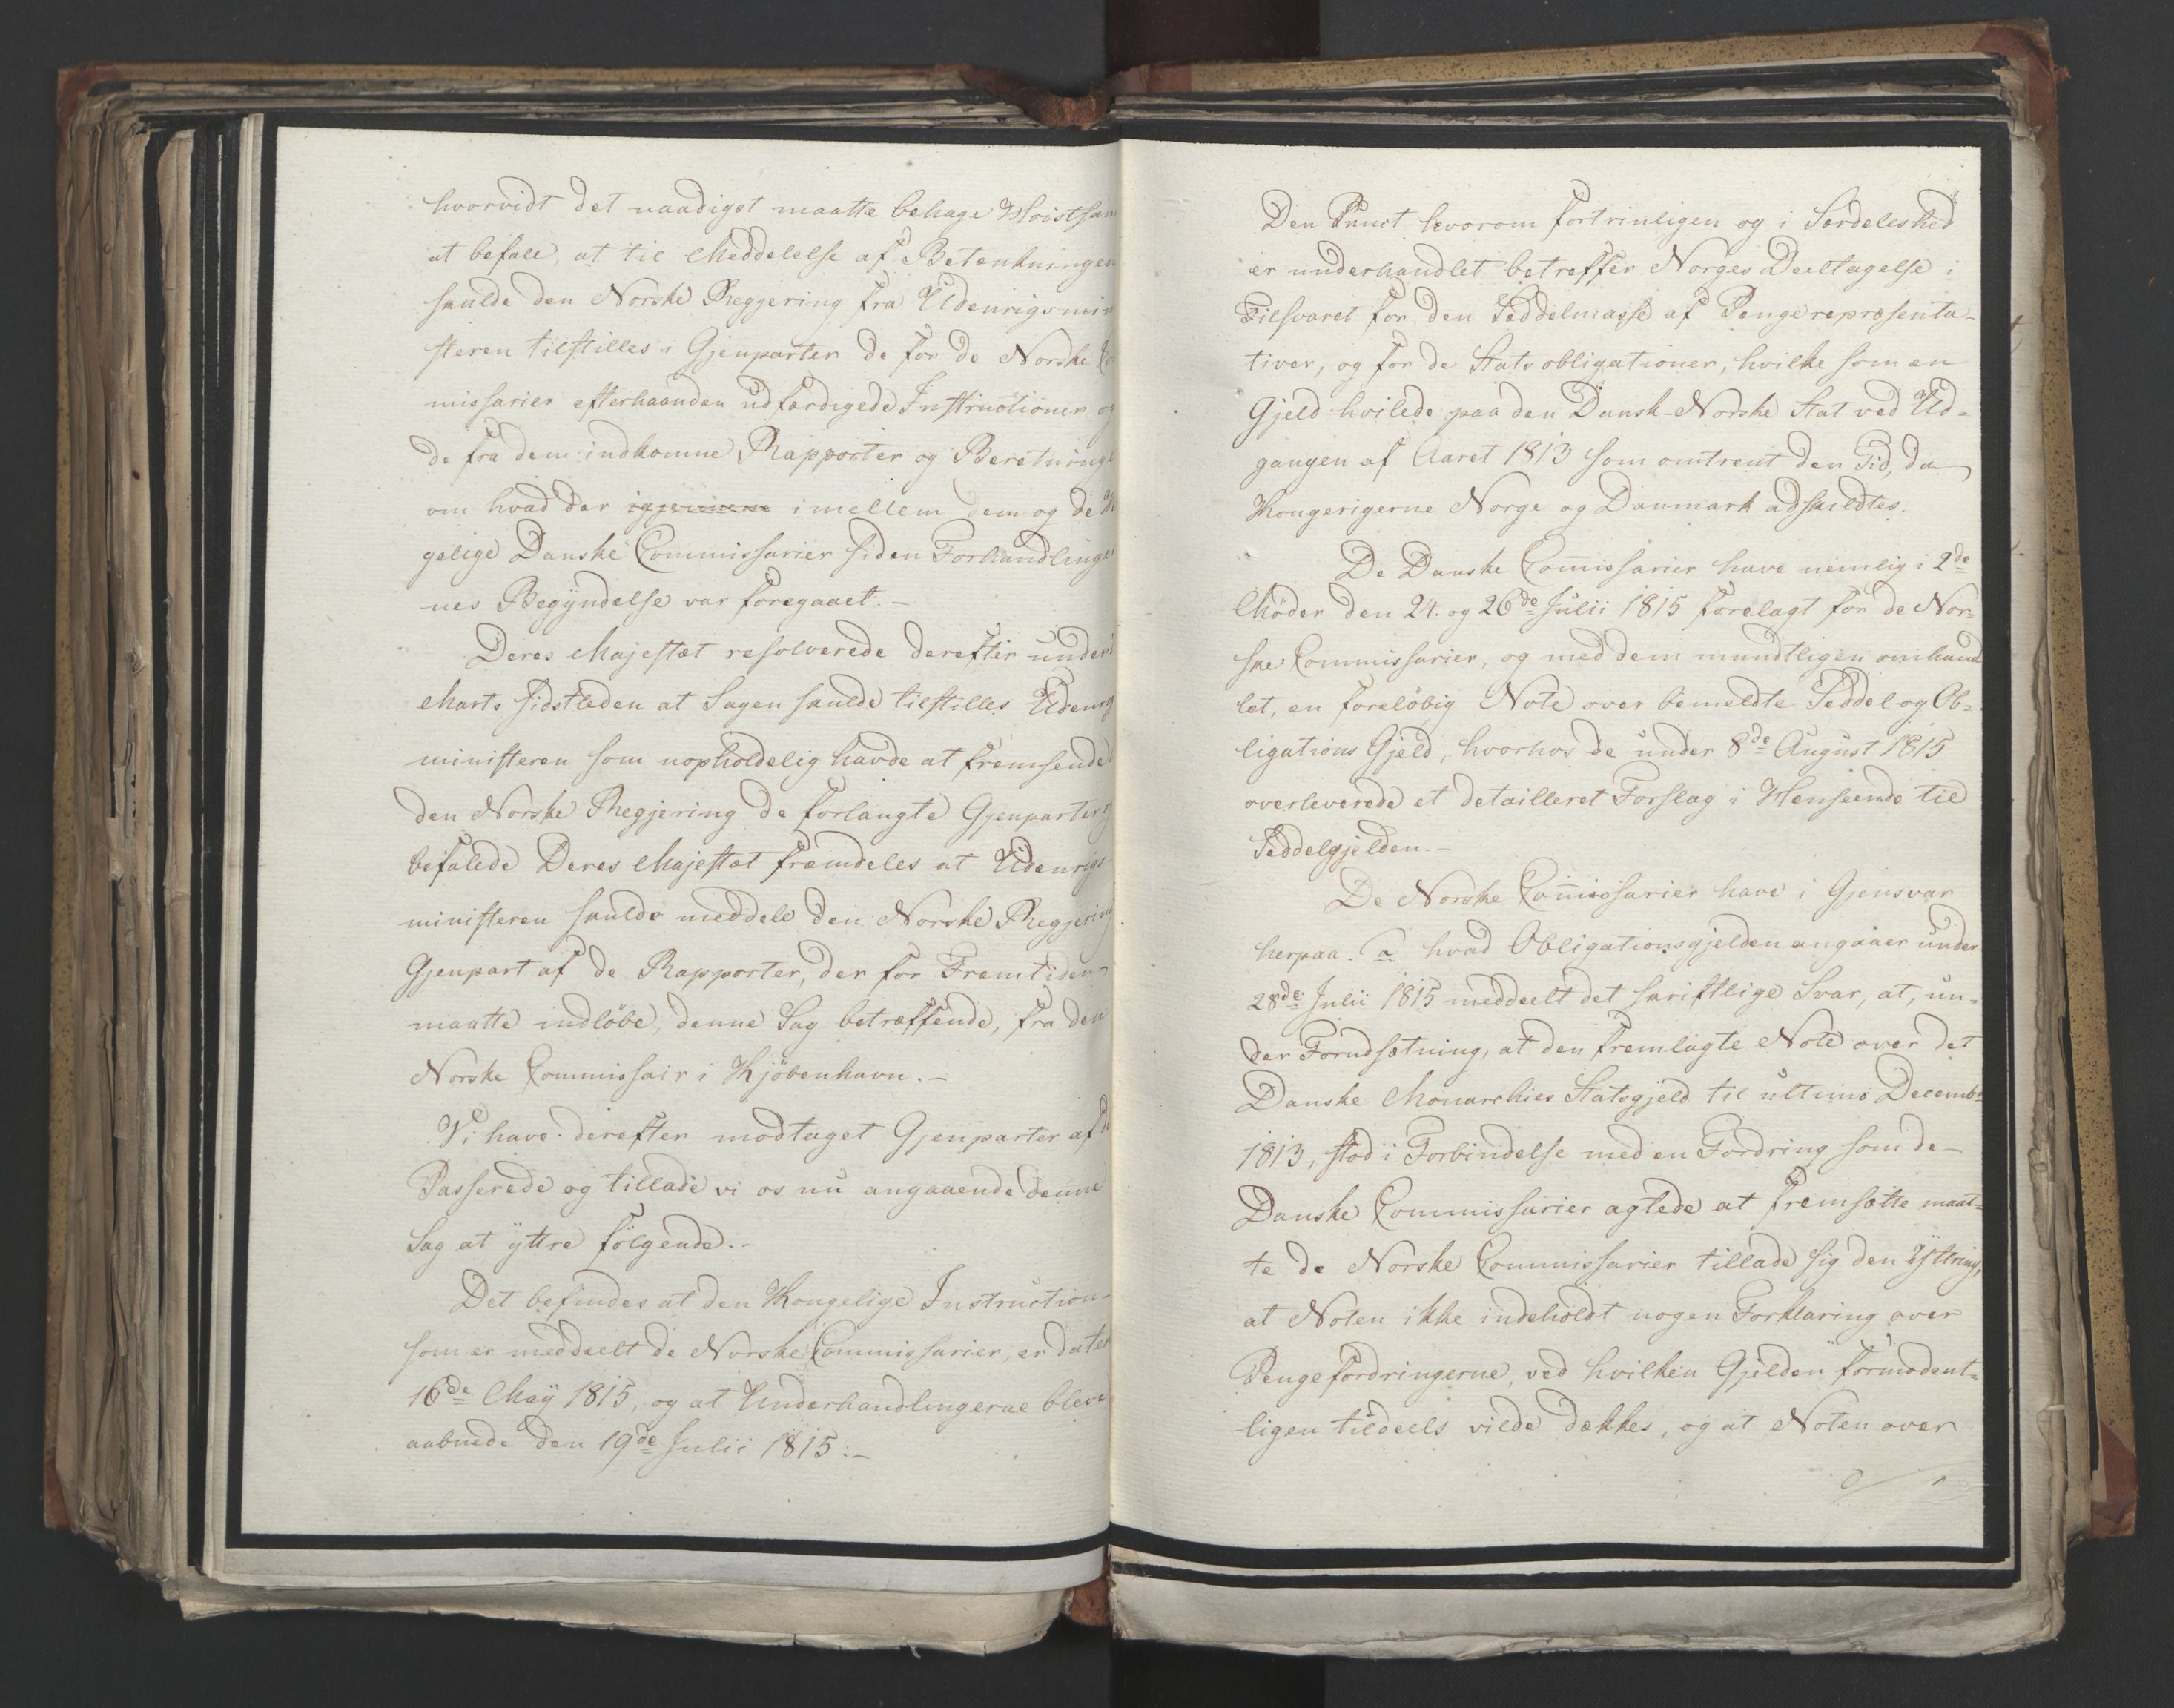 hvorvidt det naadigst maatte behage Høistsam
at befale, at til Meddelelse af Betænkningen
skulde den Norske Regjering fra Udenrigsmin
steren tilstilles i Gjenparter de for de Norske Co
missarier efterhaanden udfærdigede Instructioner og
de fra dem indkomne Rapporter og Beretninge
om hvad der igjennem imellem dem og de K
gelige Danske Commissarier siden Forhandlinge
nes Begyndelse var foregaaet.-
Deres Majestæt resolverede derefter under
Marts sidstleden at Sagen skulde tilstilles Udenrig
ministeren som uopholdelig havde at fremsende
den Norske Regjering de forlangte Gjenparter og
befalede Deres Majestæt fremdeles at Udenrigs-
ministeren skulde meddele den Norske Regjering
Gjenpart af de Rapporter, der for Fremtiden
maatte indløbe, denne Sag betræffende, fra den
Norske Commissair i Kjøbenhavn.-
Vi have derefter modtaget Gjenparter af de
Passerede og tillade vi os nu angaaende denne
Sag at yttre følgende.-
Det befindes at den Kongelige Instruction
som er meddeelt de Norske Commissarier, er dater
16de Maÿ 1815, og at Underhandlingerne bleve
aabnede den 19de Julii 1815:-
Den Punct hvorom fortrinligen og i Særdeleshed
er underhandlet betreffer Norges Deeltagelse i
Tilsvaret for den Seddelmasse af Pengerepræsenta-
tiver, og for de Statsobligationer, hvilke som en
Gjeld hvilede paa den Dansk-Norske Stat ved Ud-
gangen af Aaret 1813 som omtrent den Tid, da
Kongerigerne Norge og Danmark adskildtes.
De Danske Com̄issarier have nemlig i 2de
Møder den 24. og 26de Julii 1815 forelagt for de Nor-
ske Commissarier, og med dem mundtligen omhand
let, en foreløbig Note over bemeldte Seddel og Ob-
ligations Gjeld, hvorhos de under 8de August 1815
overleverede et detailleret Forslag i Henseende til
Seddelgjelden.-
De Norske Com̄issarier have i Gjensvar
herpaa. a hvad Obligationsgjelden angaaer under
28de Julii 1815 meddeelt det skriftlige Svar, at, un-
der Forudsætning, at den fremlagte Note over det
Danske Monarchies Statsgjeld til ultimo Decembr
1813, stod i Forbindelse med en Fordring som de
Danske Commissarier agtede at fremsætte maat-
te de Norske Commissarier tillade sig den Yttring,
at Noten ikke indeholdt nogen Forklaring over
Pengefordringerne, ved hvilken Gjelden formodent-
ligen tildeels vilde dækkes, og at Noten over